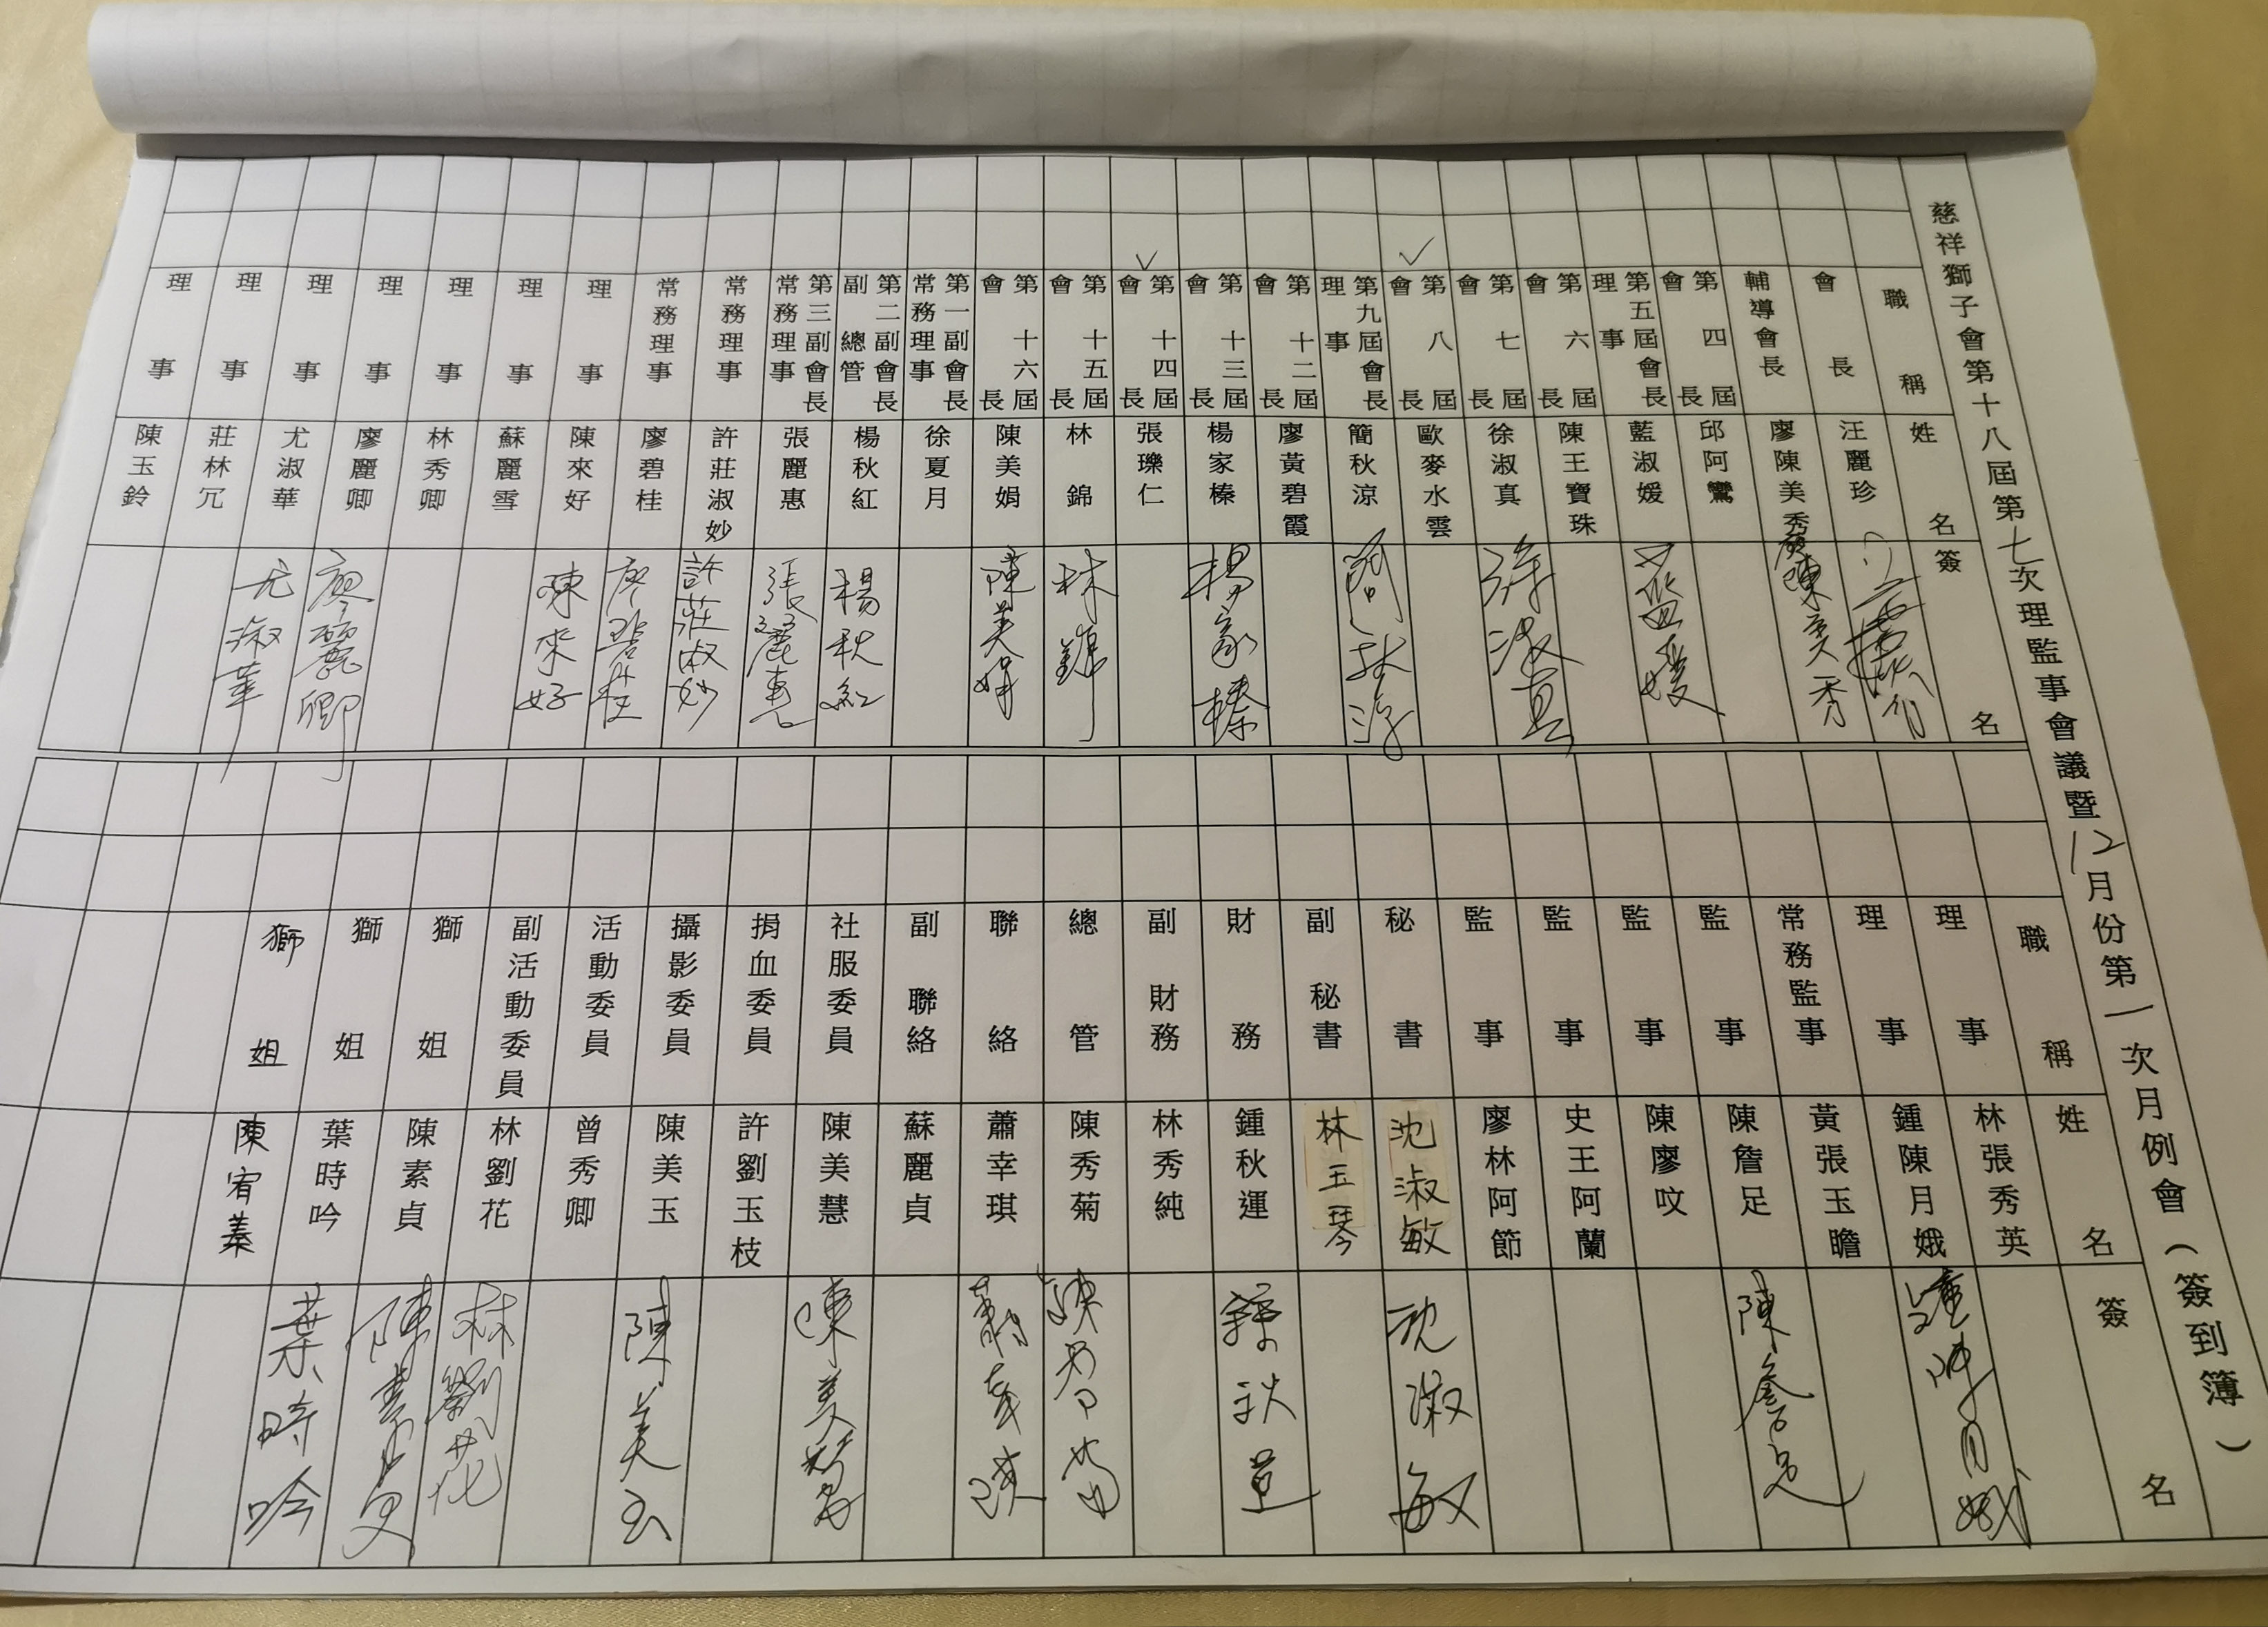 慈祥獅子會第十八屆第七次理監事會議暨12月份第一次月例會（簽到簿）
職稱 姓名 簽名
會長 汪麗珍
輔導會長 廖陳美秀 廖陳美秀
第四屆會長 邱阿鸞
第五屆會長理事 藍淑媛
第六屆會長 陳王寶珠
第七屆會長 徐淑真 徐淑真
✓ 第八屆會長 歐麥水雲
第九屆會長理事 簡秋涼 簡秋涼
第十二屆會長 廖黃碧霞
第十三屆會長 楊家榛 楊家榛
✓ 第十四屆會長 張瓅仁
第十五屆會長 林錦 林錦
第十六屆會長 陳美娟 陳美娟
第一副會長常務理事 徐夏月
第二副會長副總管 楊秋紅 楊秋紅
第三副會長常務理事 張麗惠 張麗惠
常務理事 許莊淑妙 許莊淑妙
常務理事 廖碧桂 廖碧桂
理事 陳來好 陳來好
理事 蘇麗雪
理事 林秀卿
理事 廖麗卿 廖麗卿
理事 尤淑華 尤淑華
理事 莊林冗
理事 陳玉鈴
職稱 姓名 簽名
理事 林張秀英
理事 鍾陳月娥 鍾陳月娥
常務監事 黃張玉瞻
監事 陳詹足 陳詹足
監事 陳廖呅
監事 史王阿蘭
監事 廖林阿節
秘書 沈淑敏 沈淑敏
副秘書 林玉琴
財務 鍾秋運 鍾秋運
副財務 林秀純
總管 陳秀菊 陳秀菊
聯絡 蕭幸琪 蕭幸琪
副聯絡 蘇麗貞
社服委員 陳美慧 陳美慧
捐血委員 許劉玉枝
攝影委員 陳美玉 陳美玉
活動委員 曾秀卿
副活動委員 林劉花 林劉花
獅姐 陳素貞 陳素貞
獅姐 葉時吟 葉時吟
獅姐 陳宥蓁